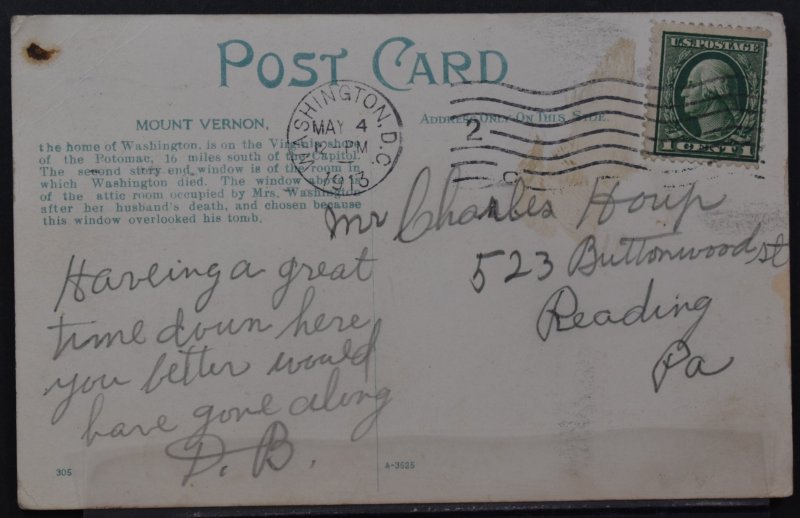 POST CARD
U.S. POSTAGE
1 CENT 1
WASHINGTON, D.C.
MAY 4
12 PM
1913
2
ADDRESS ONLY ON THIS SIDE.
MOUNT VERNON,
the home of Washington, is on the Virginia shore
of the Potomac, 16 miles south of the Capitol.
The second story end window is of the room in
which Washington died. The window above is
of the attic room occupied by Mrs. Washington
after her husband's death, and chosen because
this window overlooked his tomb.
Mr Charles Houp
523 Buttonwood st
Reading
Pa
Haveing a great
time down here
you better would
have gone along
D. B.
305
A-3525